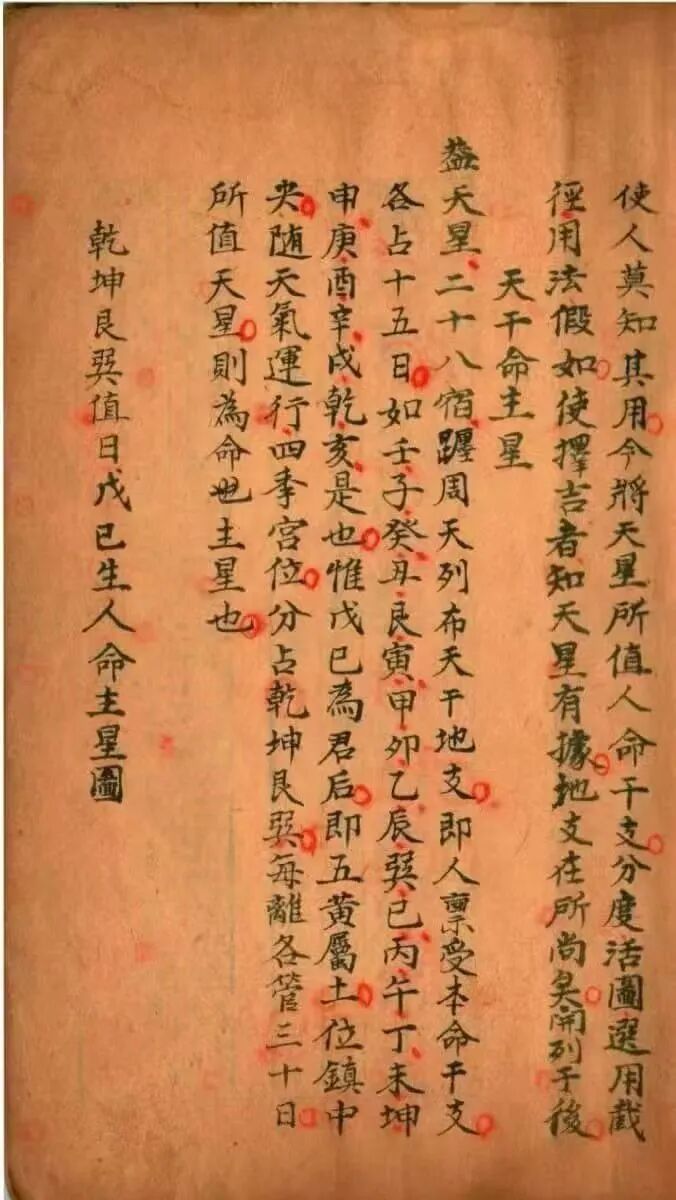 使人莫知其用今將天星所值人命干支分度活圖選用截
徑用法假如使擇吉者知天星有據地支在所尚矣開列于後
天干命主星
蓋天星二十八宿躔周天列布天干地支即人禀受本命干支
各占十五日如壬子癸丑艮寅甲卯乙辰巽巳丙午丁未坤
申庚酉辛戌乾亥是也惟戊己為君后即五黃屬土位鎮中
央随天氣運行四季宮位分占乾坤艮巽每離各管三十日
所值天星則為命主星也
乾坤艮巽值日戊己生人命主星圖